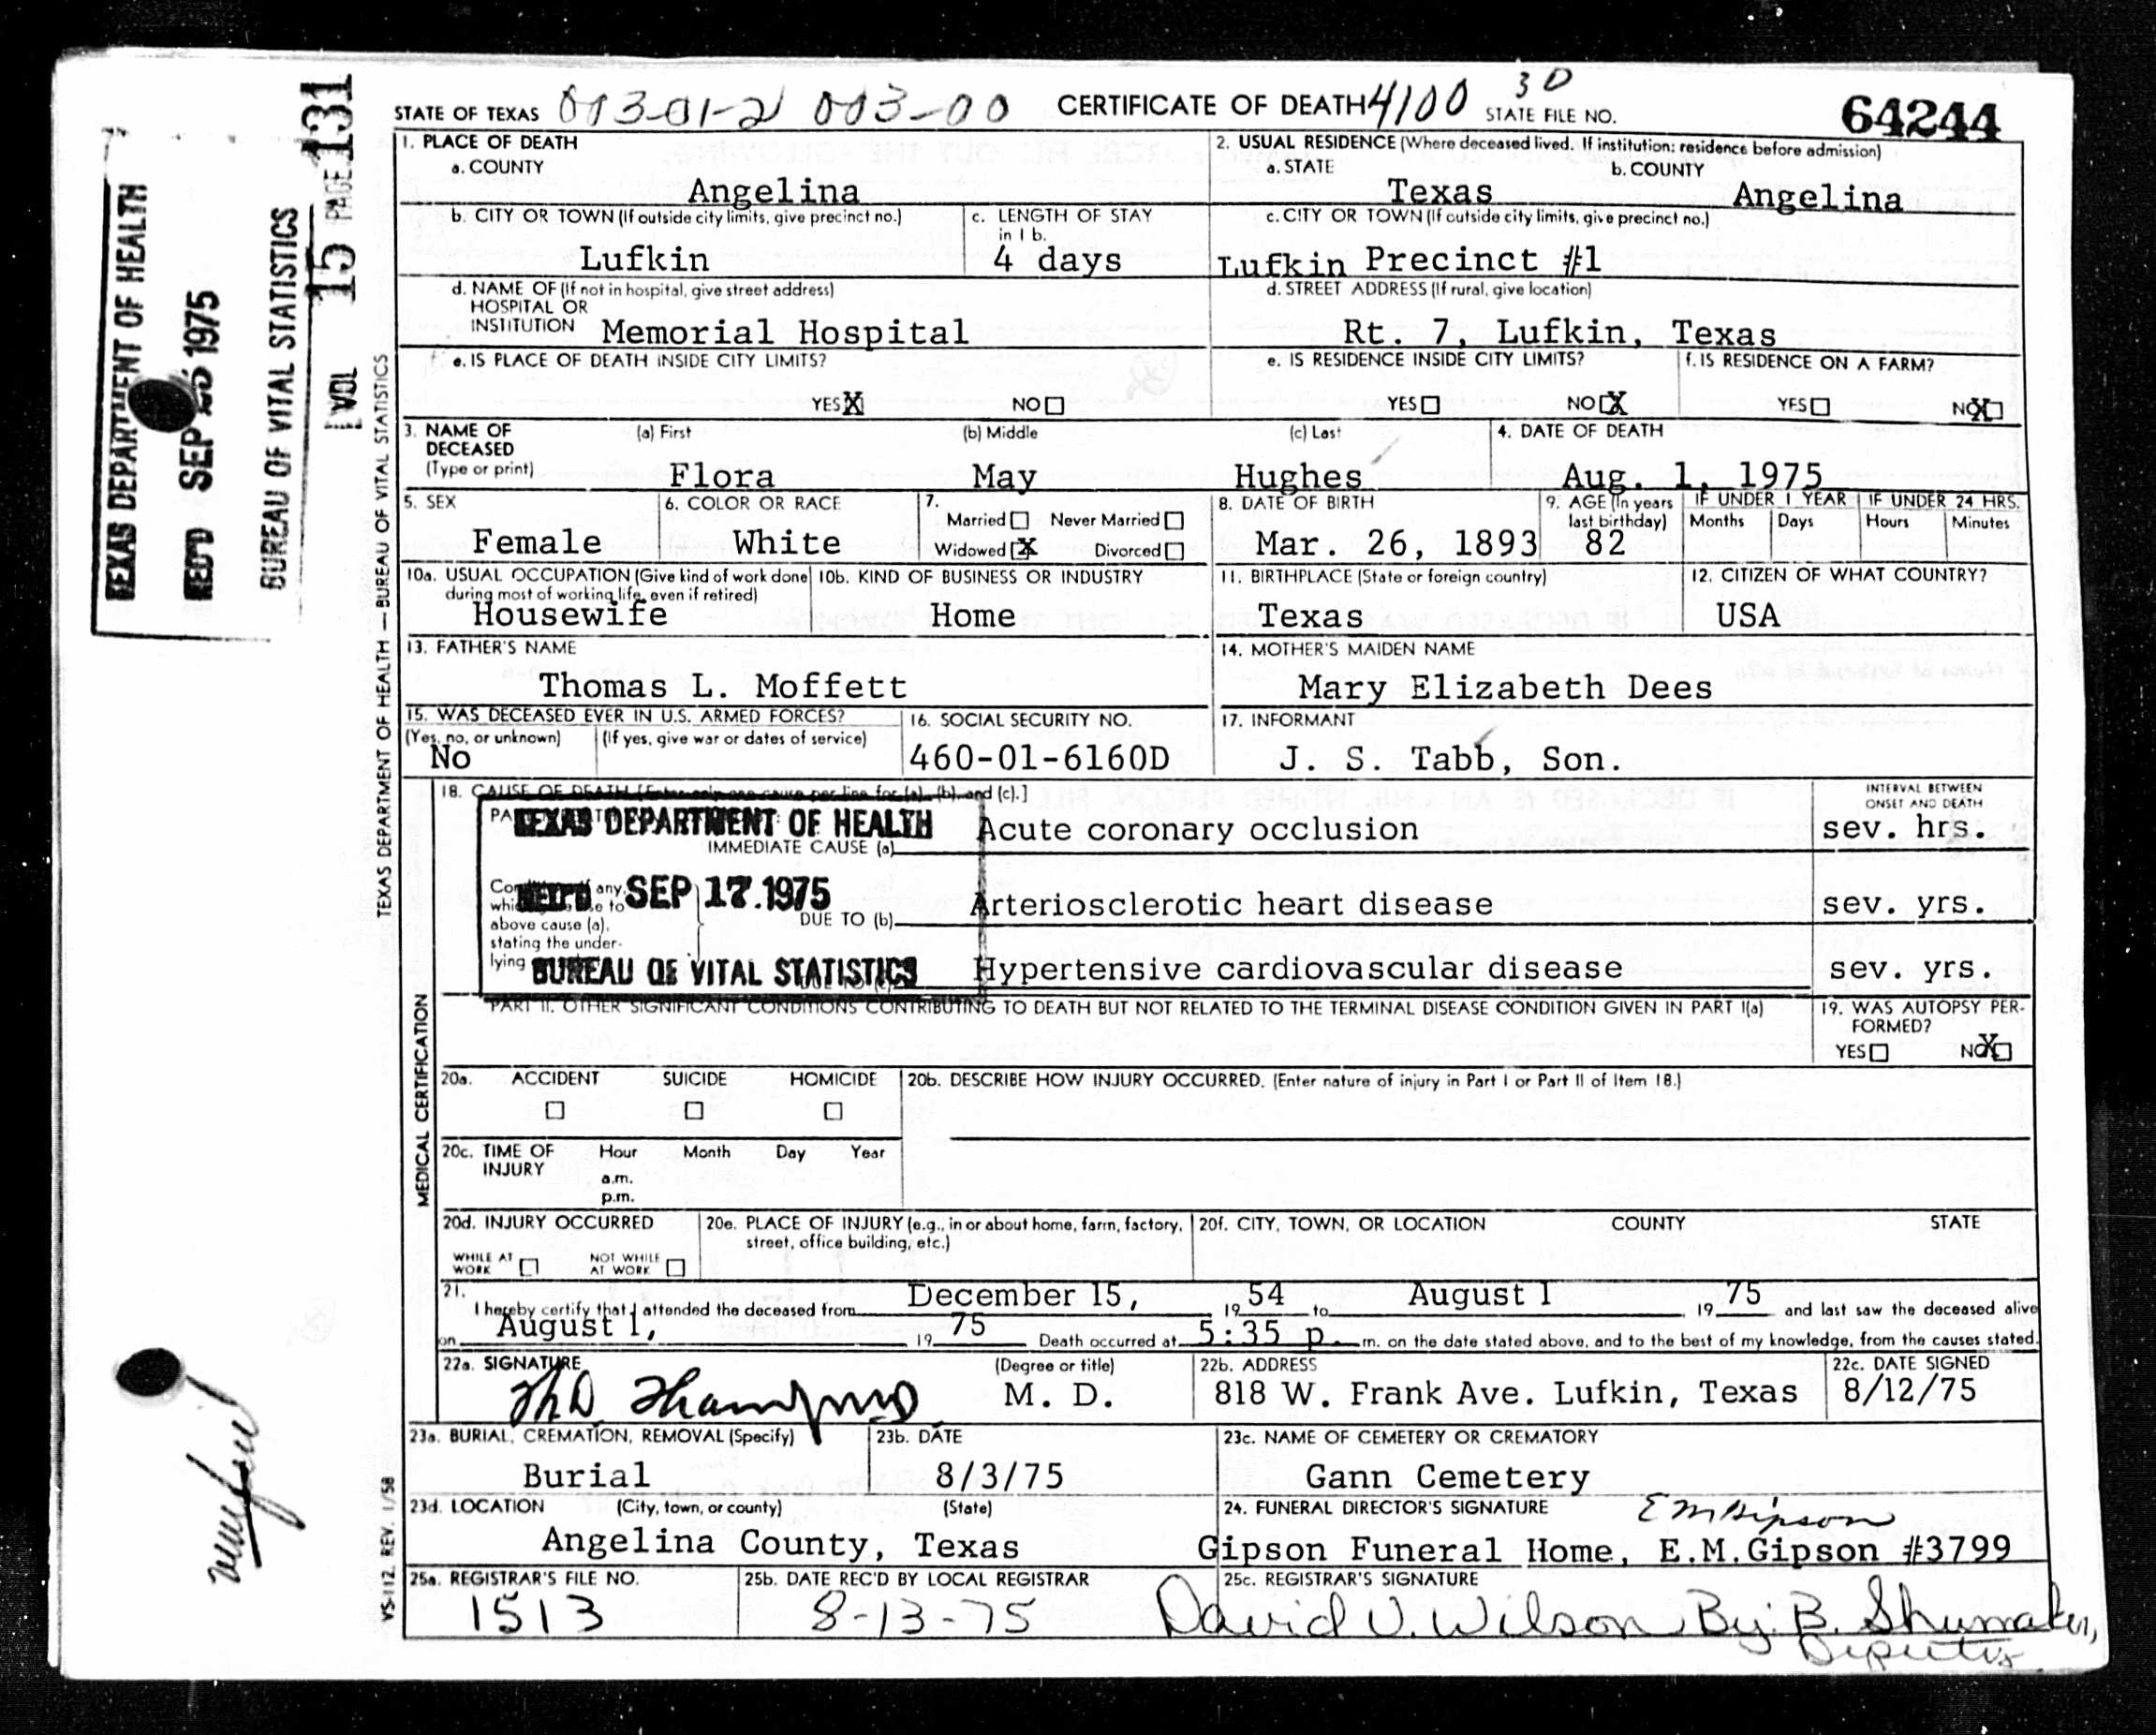 TEXAS DEPARTMENT OF HEALTH
REC'D SEP 1975
BUREAU OF VITAL STATISTICS
VOL 15 PAGE 131
TEXAS DEPARTMENT OF HEALTH — BUREAU OF VITAL STATISTICS
STATE OF TEXAS 003-01-2 003-00 CERTIFICATE OF DEATH 4100 30 STATE FILE NO. 64244
1. PLACE OF DEATH 2. USUAL RESIDENCE (Where deceased lived. If institution: residence before admission)
a. COUNTY a. STATE b. COUNTY
Angelina Texas Angelina
b. CITY OR TOWN (If outside city limits, give precinct no.) c. LENGTH OF STAY in 1 b. c. CITY OR TOWN (If outside city limits, give precinct no.)
Lufkin 4 days Lufkin Precinct #1
d. NAME OF (If not in hospital, give street address) d. STREET ADDRESS (If rural, give location)
HOSPITAL OR
INSTITUTION Memorial Hospital Rt. 7, Lufkin, Texas
e. IS PLACE OF DEATH INSIDE CITY LIMITS? e. IS RESIDENCE INSIDE CITY LIMITS? f. IS RESIDENCE ON A FARM?
YES X NO YES NO X YES NO X
3. NAME OF (a) First (b) Middle (c) Last 4. DATE OF DEATH
DECEASED
(Type or print) Flora May Hughes Aug. 1, 1975
5. SEX 6. COLOR OR RACE 7. 8. DATE OF BIRTH 9. AGE (In years IF UNDER 1 YEAR IF UNDER 24 HRS.
Married Never Married last birthday) Months Days Hours Minutes
Female White Widowed X Divorced Mar. 26, 1893 82
10a. USUAL OCCUPATION (Give kind of work done 10b. KIND OF BUSINESS OR INDUSTRY 11. BIRTHPLACE (State or foreign country) 12. CITIZEN OF WHAT COUNTRY?
during most of working life, even if retired)
Housewife Home Texas USA
13. FATHER'S NAME 14. MOTHER'S MAIDEN NAME
Thomas L. Moffett Mary Elizabeth Dees
15. WAS DECEASED EVER IN U.S. ARMED FORCES? 16. SOCIAL SECURITY NO. 17. INFORMANT
(Yes, no, or unknown) (If yes, give war or dates of service)
No 460-01-6160D J. S. Tabb, Son.
MEDICAL CERTIFICATION
18. CAUSE OF DEATH [Enter only one cause per line for (a), (b), and (c).] INTERVAL BETWEEN
ONSET AND DEATH
TEXAS DEPARTMENT OF HEALTH Acute coronary occlusion sev. hrs.
IMMEDIATE CAUSE (a)
REC'D SEP 17.1975
DUE TO (b) Arteriosclerotic heart disease sev. yrs.
above cause (a),
stating the under-
lying BUREAU OF VITAL STATISTICS Hypertensive cardiovascular disease sev. yrs.
PART II. OTHER SIGNIFICANT CONDITIONS CONTRIBUTING TO DEATH BUT NOT RELATED TO THE TERMINAL DISEASE CONDITION GIVEN IN PART I(a) 19. WAS AUTOPSY PER-
FORMED?
YES NO X
20a. ACCIDENT SUICIDE HOMICIDE 20b. DESCRIBE HOW INJURY OCCURRED. (Enter nature of injury in Part I or Part II of Item 18.)
20c. TIME OF INJURY Hour Month Day Year
a.m.
p.m.
20d. INJURY OCCURRED 20e. PLACE OF INJURY (e.g., in or about home, farm, factory, 20f. CITY, TOWN, OR LOCATION COUNTY STATE
street, office building, etc.)
WHILE AT WORK NOT WHILE AT WORK
21. I hereby certify that I attended the deceased from December 15, 19 54 to August 1 19 75 and last saw the deceased alive
on August 1, 19 75 Death occurred at 5:35 p. m. on the date stated above, and to the best of my knowledge, from the causes stated.
22a. SIGNATURE (Degree or title) 22b. ADDRESS 22c. DATE SIGNED
M. D. 818 W. Frank Ave. Lufkin, Texas 8/12/75
23a. BURIAL, CREMATION, REMOVAL (Specify) 23b. DATE 23c. NAME OF CEMETERY OR CREMATORY
Burial 8/3/75 Gann Cemetery
23d. LOCATION (City, town, or county) (State) 24. FUNERAL DIRECTOR'S SIGNATURE E M Gipson
Angelina County, Texas Gipson Funeral Home, E.M.Gipson #3799
25a. REGISTRAR'S FILE NO. 25b. DATE REC'D BY LOCAL REGISTRAR 25c. REGISTRAR'S SIGNATURE
1513 8-13-75 David V. Wilson By: B. Shumaker,
VS-112 REV. 1/58